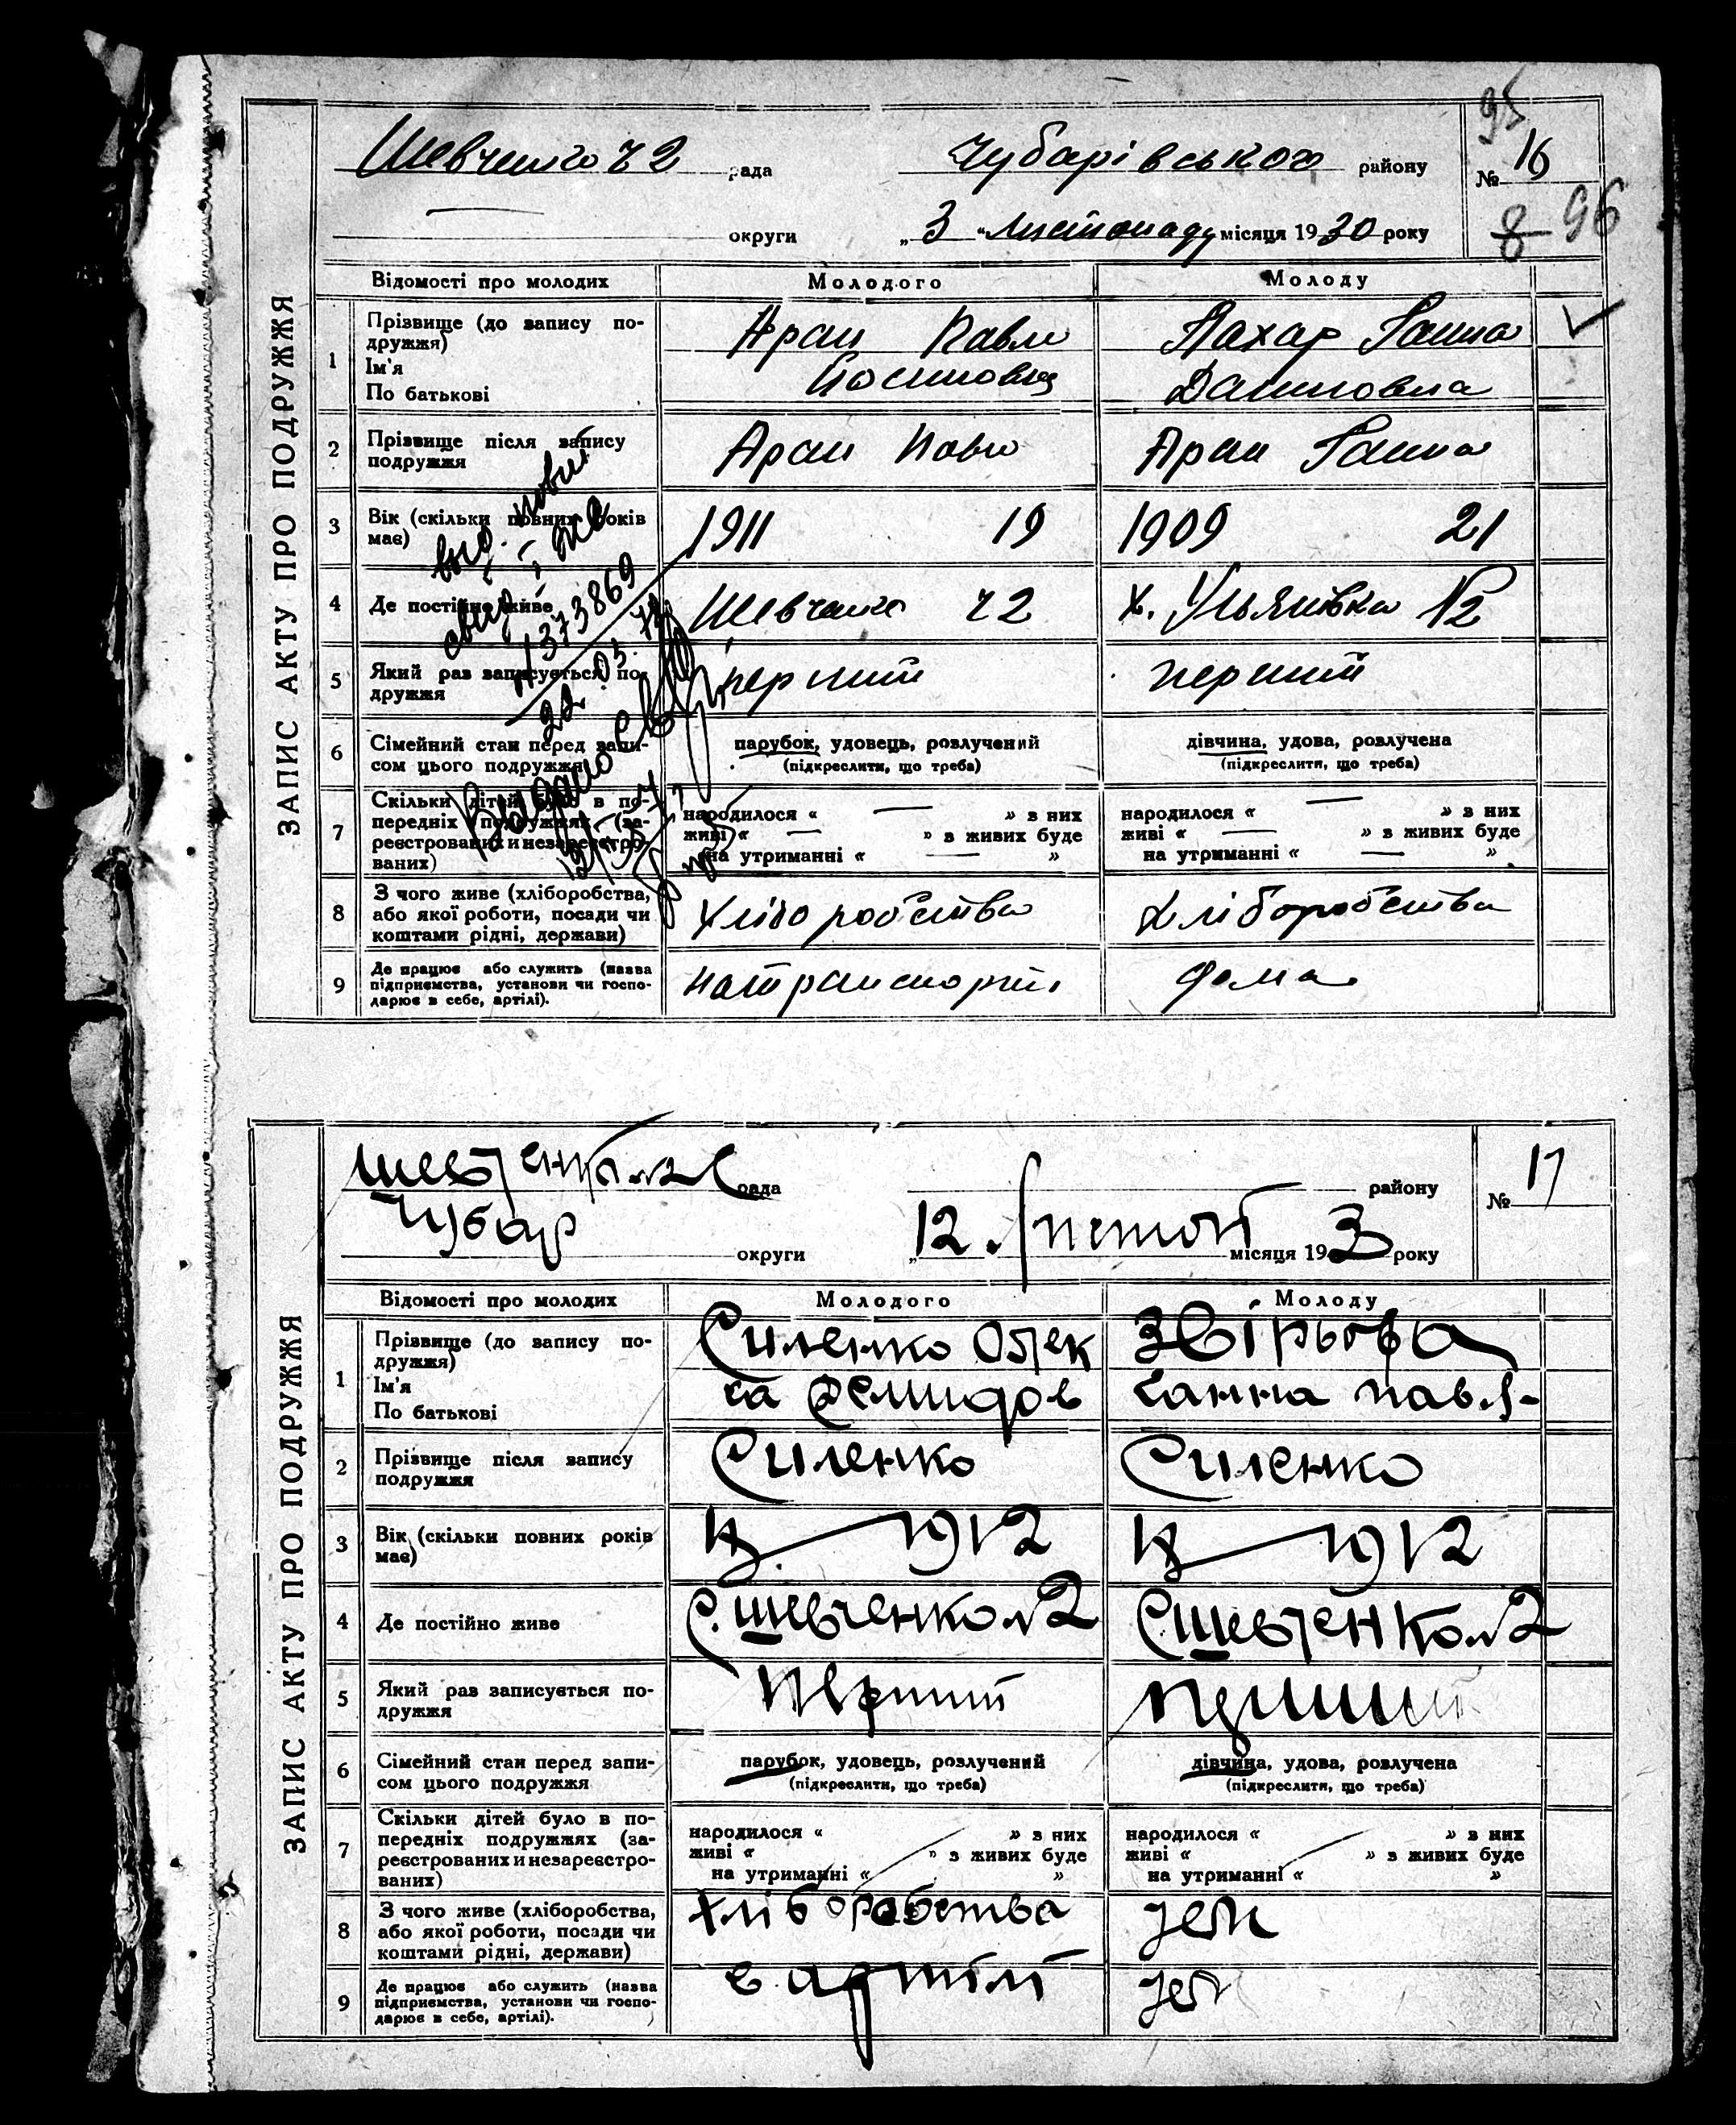 ЗАПИС АКТУ ПРО ПОДРУЖЖЯ
95
Шевченко ч 2 рада Чубарівського району № 16
округи „3 “ Листопаду місяця 1930 року
8 96
Відомості про молодих Молодого Молоду
1 Прізвище (до запису по-
дружжя)
Ім'я
По батькові
Аран Павло
Йосипович
Пахар Ганна
Даниловна
2 Прізвище після запису
подружжя
Аран Павло Аран Ганна
3 Вік (скільки повних років
має)
1911 19 1909 21
4 Де постійно живе Шевченко ч 2 х. Ульянівка №2
5 Який раз записується по-
дружжя
перший перший
6 Сімейний стан перед запи-
сом цього подружжя
парубок, удовець, розлучений
(підкреслити, що треба)
дівчина, удова, розлучена
(підкреслити, що треба)
7 Скільки дітей було в по-
передніх подружжях (за-
реєстрованих и незареєстро-
ваних)
народилося « — » з них
живі « — » з живих буде
на утриманні « — »
народилося « — » з них
живі « — » з живих буде
на утриманні « — »
8 З чого живе (хліборобства,
або якої роботи, посади чи
коштами рідні, держави)
хліборобства хліборобства
9 Де працює або служить (назва
підприємства, установи чи госпо-
дарює в себе, артілі).
на транспорті дома
выд. повт
373869
Выдано
ЗАПИС АКТУ ПРО ПОДРУЖЖЯ
Шевченко №2 рада району № 17
Чубар округи „12. Листоп місяця 193 року
Відомості про молодих Молодого Молоду
1 Прізвище (до запису по-
дружжя)
Ім'я
По батькові
Силенко Олек
са Демидов
Звірьова
Ганна Павл-
2 Прізвище після запису
подружжя
Силенко Силенко
3 Вік (скільки повних років
має)
1912 1912
4 Де постійно живе С. Шевченко №2 С Шевченко №2
5 Який раз записується по-
дружжя
перший перший
6 Сімейний стан перед запи-
сом цього подружжя
парубок, удовець, розлучений
(підкреслити, що треба)
дівчина, удова, розлучена
(підкреслити, що треба)
7 Скільки дітей було в по-
передніх подружжях (за-
реєстрованих и незареєстро-
ваних)
народилося « » з них
живі « » з живих буде
на утриманні « »
народилося « » з них
живі « » з живих буде
на утриманні « »
8 З чого живе (хліборобства,
або якої роботи, посади чи
коштами рідні, держави)
хліборобства
9 Де працює або служить (назва
підприємства, установи чи госпо-
дарює в себе, артілі).
в артілі